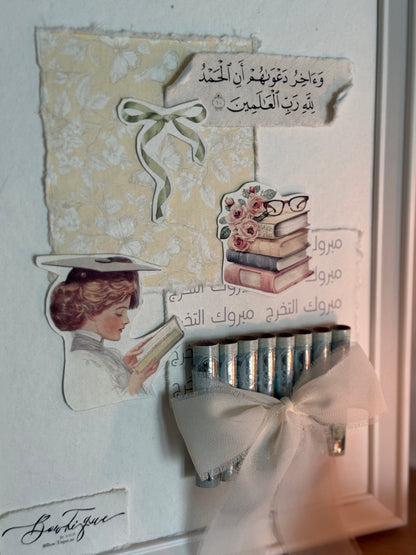 وَءَاخِرُ دَعْوَىٰهُمْ أَنِ ٱلْحَمْدُ
لِلَّهِ رَبِّ ٱلْعَـٰلَمِينَ ١٠
مبروك
مبروك التخرج
مبروك التخرج مبروك التخرج
رج
BowTique